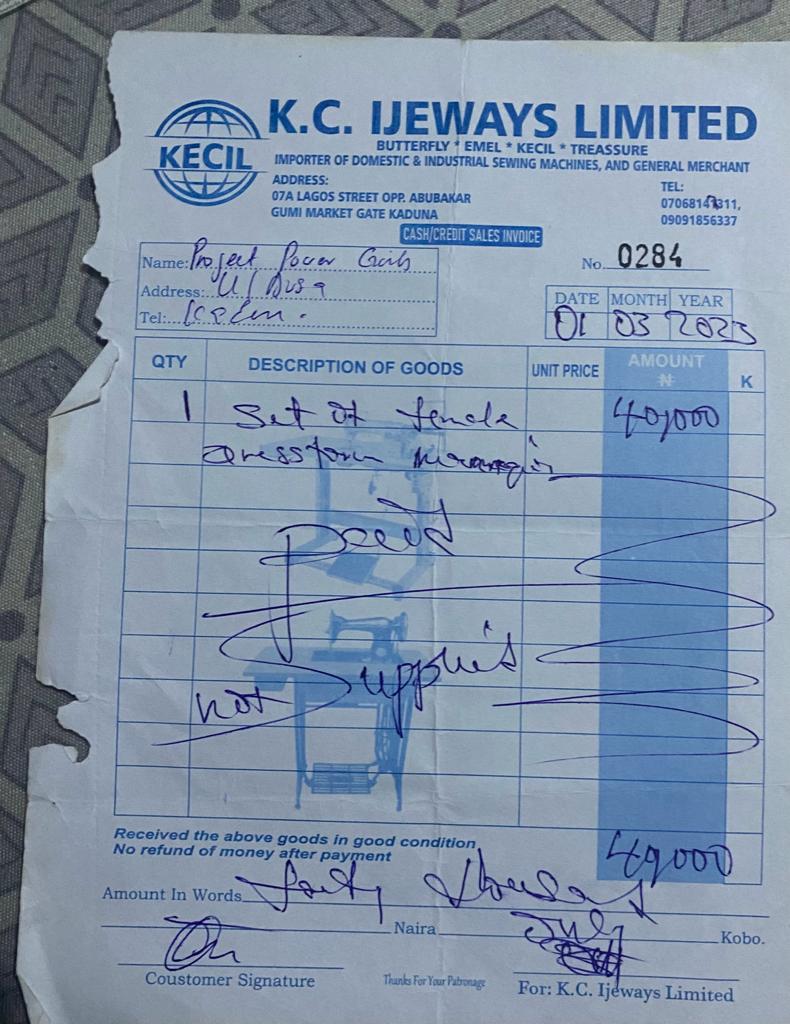 K.C. IJEWAYS LIMITED
KECIL
BUTTERFLY * EMEL * KECIL * TREASSURE
IMPORTER OF DOMESTIC & INDUSTRIAL SEWING MACHINES, AND GENERAL MERCHANT
ADDRESS:
07A LAGOS STREET OPP. ABUBAKAR
GUMI MARKET GATE KADUNA
TEL:
09091856337
CASH/CREDIT SALES INVOICE
Name: Project Power Girls
Address:
Tel:
No. 0284
DATE MONTH YEAR
01 03 2023
QTY DESCRIPTION OF GOODS UNIT PRICE AMOUNT ₦ K
1 Set of female 40,000
dressform
paid
not Supplied
Received the above goods in good condition
No refund of money after payment
40,000
Amount In Words Forty thousand
Naira Only Kobo.
Coustomer Signature
Thanks For Your Patronage
For: K.C. Ijeways Limited